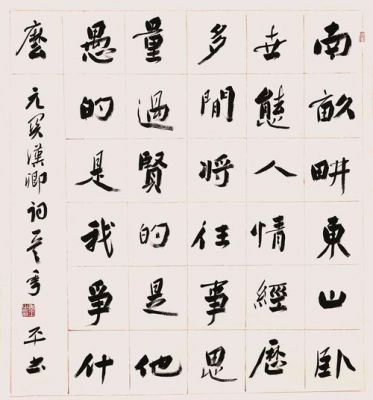 南畝畊東山臥
世態人情經歷
多閒將往事思
量過賢的是他
愚的是我爭什
麼
元関漢卿詞 平书